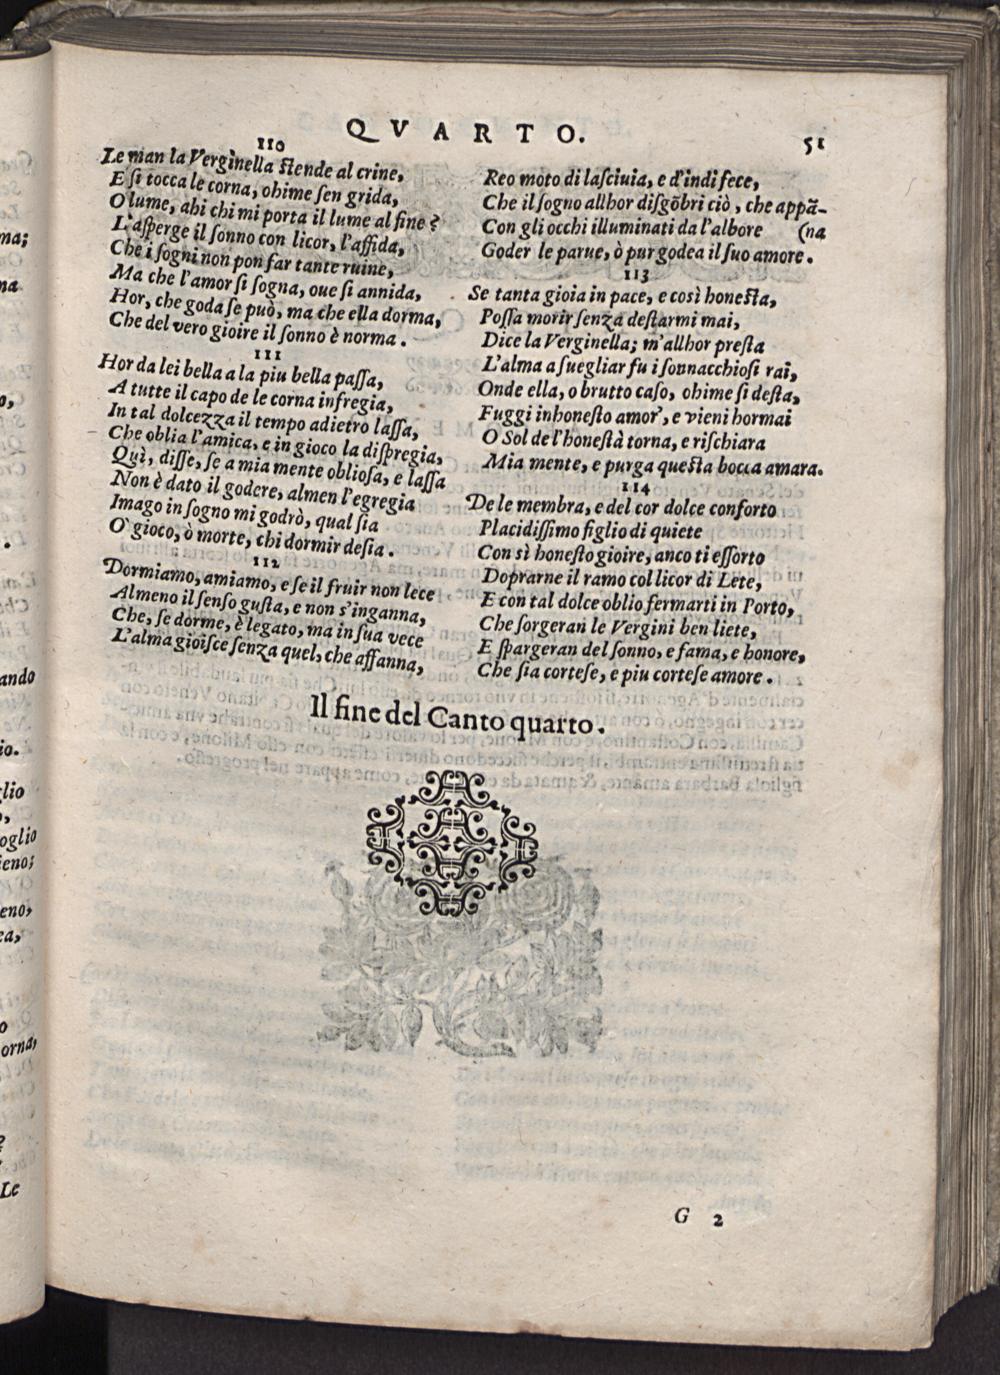 QVARTO. 51
110
Le man la Verginella ſtende al crine,
E ſi tocca le corna, ohime ſen grida,
O lume, ahi chi mi porta il lume al fine?
L'aſperge il ſonno con licor, l'affida,
Che i ſogni non pon far tante ruine,
Ma che l'amor ſi ſogna, oue ſi annida,
Hor, che goda ſe può, ma che ella dorma,
Che del vero gioire il ſonno è norma.
111
Hor da lei bella a la piu bella paſſa,
A tutte il capo de le corna infregia,
In tal dolcezza il tempo adietro laſſa,
Che oblia l'amica, e in gioco la diſpregia,
Quì, diſſe, ſe a mia mente oblioſa, e laſſa
Non è dato il godere, almen l'egregia
Imago in ſogno mi godrò, qual ſia
O' gioco, ò morte, chi dormir deſia.
112
Dormiamo, amiamo, e ſe il fruir non lece
Almeno il ſenſo guſta, e non s'inganna,
Che, ſe dorme, è legato, ma in ſua vece
L'alma gioiſce ſenza quel, che affanna,
Reo moto di laſciuia, e d'indi fece,
Che il ſogno allhor diſgõbri ciò, che appã-
Con gli occhi illuminati da l'albore (na
Goder le parue, ò pur godea il ſuo amore.
113
Se tanta gioia in pace, e così honeſta,
Poſſa morir ſenza deſtarmi mai,
Dice la Verginella; m'allhor preſta
L'alma a ſuegliar fu i ſonnacchioſi rai,
Onde ella, o brutto caſo, ohime ſi deſta,
Fuggi inhoneſto amor', e vieni hormai
O Sol de l'honeſtà torna, e riſchiara
Mia mente, e purga queſta bocca amara.
114
De le membra, e del cor dolce conforto
Placidiſſimo figlio di quiete
Con sì honeſto gioire, anco ti eſſorto
Doprarne il ramo col licor di Lete,
E con tal dolce oblio fermarti in Porto,
Che ſorgeran le Vergini ben liete,
E ſpargeran del ſonno, e fama, e honore,
Che ſia corteſe, e piu corteſe amore.
Il fine del Canto quarto.
G 2